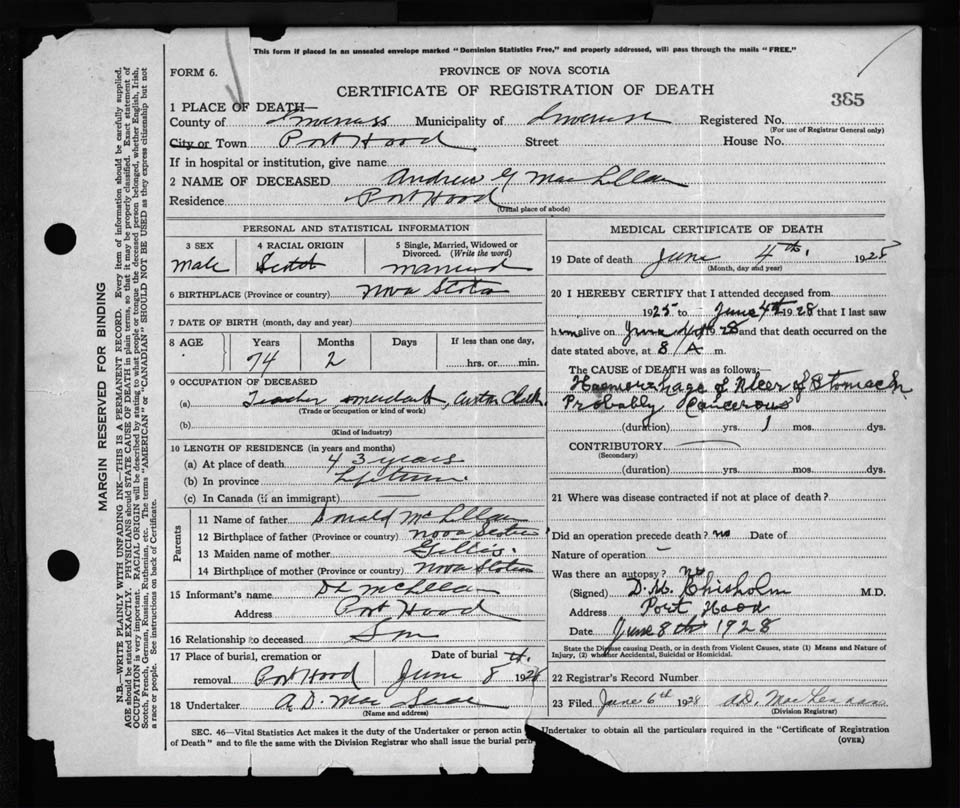 This form if placed in an unsealed envelope marked "Dominion Statistics Free," and properly addressed, will pass through the mails "FREE."
FORM 6.
PROVINCE OF NOVA SCOTIA
CERTIFICATE OF REGISTRATION OF DEATH
385
1 PLACE OF DEATH—
County of Inverness Municipality of Inverness Registered No.
(For use of Registrar General only)
City or Town Port Hood Street House No.
If in hospital or institution, give name
2 NAME OF DECEASED Andrew G MacLellan
Residence Port Hood
(Usual place of abode)
PERSONAL AND STATISTICAL INFORMATION
3 SEX 4 RACIAL ORIGIN 5 Single, Married, Widowed or Divorced. (Write the word)
Male Scotch Married
6 BIRTHPLACE (Province or country) Nova Scotia
7 DATE OF BIRTH (month, day and year)
8 AGE Years Months Days If less than one day,
74 2 hrs. or min.
9 OCCUPATION OF DECEASED
(a) Teacher, merchant,
(Trade or occupation or kind of work)
(b)
(Kind of industry)
10 LENGTH OF RESIDENCE (in years and months)
(a) At place of death 43 years
(b) In province Lifetime
(c) In Canada (if an immigrant)
Parents
11 Name of father Donald McLellan
12 Birthplace of father (Province or country) Nova Scotia
13 Maiden name of mother Gillis
14 Birthplace of mother (Province or country) Nova Scotia
15 Informant's name DL McLellan
Address Port Hood
16 Relationship to deceased Son
17 Place of burial, cremation or removal Port Hood Date of burial June 8th 1928
18 Undertaker A. D. Mac Isaac
(Name and address)
MEDICAL CERTIFICATE OF DEATH
19 Date of death June 4th. 1928
(Month, day and year)
20 I HEREBY CERTIFY that I attended deceased from
1925 to June 4th 1928 that I last saw
him alive on June 1928 and that death occurred on
date stated above, at 8/A m.
The CAUSE of DEATH was as follows,—
Haemorrhage of Ulcer of Stomach
Probably Cancerous
(duration) yrs. 1 mos. dys.
CONTRIBUTORY
(Secondary)
(duration) yrs. mos. dys.
21 Where was disease contracted if not at place of death?
Did an operation precede death? no Date of
Nature of operation –
Was there an autopsy? no
(Signed) D. M. Chisholm M.D.
Address Port Hood
Date June 8th 1928
State the Disease causing Death, or in death from Violent Causes, state (1) Means and Nature of
Injury, (2) whether Accidental, Suicidal or Homicidal.
22 Registrar's Record Number
23 Filed June 6th 1928 A.D. MacLennan
(Division Registrar)
SEC. 46—Vital Statistics Act makes it the duty of the Undertaker or person acting Undertaker to obtain all the particulars required in the "Certificate of Registration
of Death" and to file the same with the Division Registrar who shall issue the burial
(OVER)
MARGIN RESERVED FOR BINDING
N.B.—WRITE PLAINLY WITH UNFADING INK—THIS IS A PERMANENT RECORD. Every item of information should be carefully supplied.
AGE should be stated EXACTLY. PHYSICIANS should STATE CAUSE OF DEATH in plain terms, so that it may be properly classified. Exact statement of
OCCUPATION is very important. RACIAL ORIGIN will be described by stating to what people or tongue the deceased person belonged, whether English, Irish,
Scotch, French, German, Russian, Ruthenian, etc. The terms "AMERICAN" or "CANADIAN" SHOULD NOT BE USED as they express citizenship but not
a race or people. See instructions on back of Certificate.